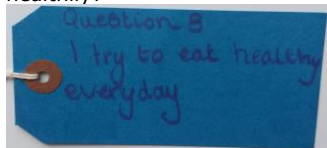 Question 8
I try to eat healthy
everyday